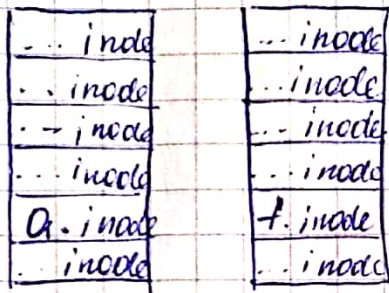 ... inode
.. inode
.. inode
... inode
a. inode
.. inode
... inode
... inode
... inode
... inode
t. inode
... inode